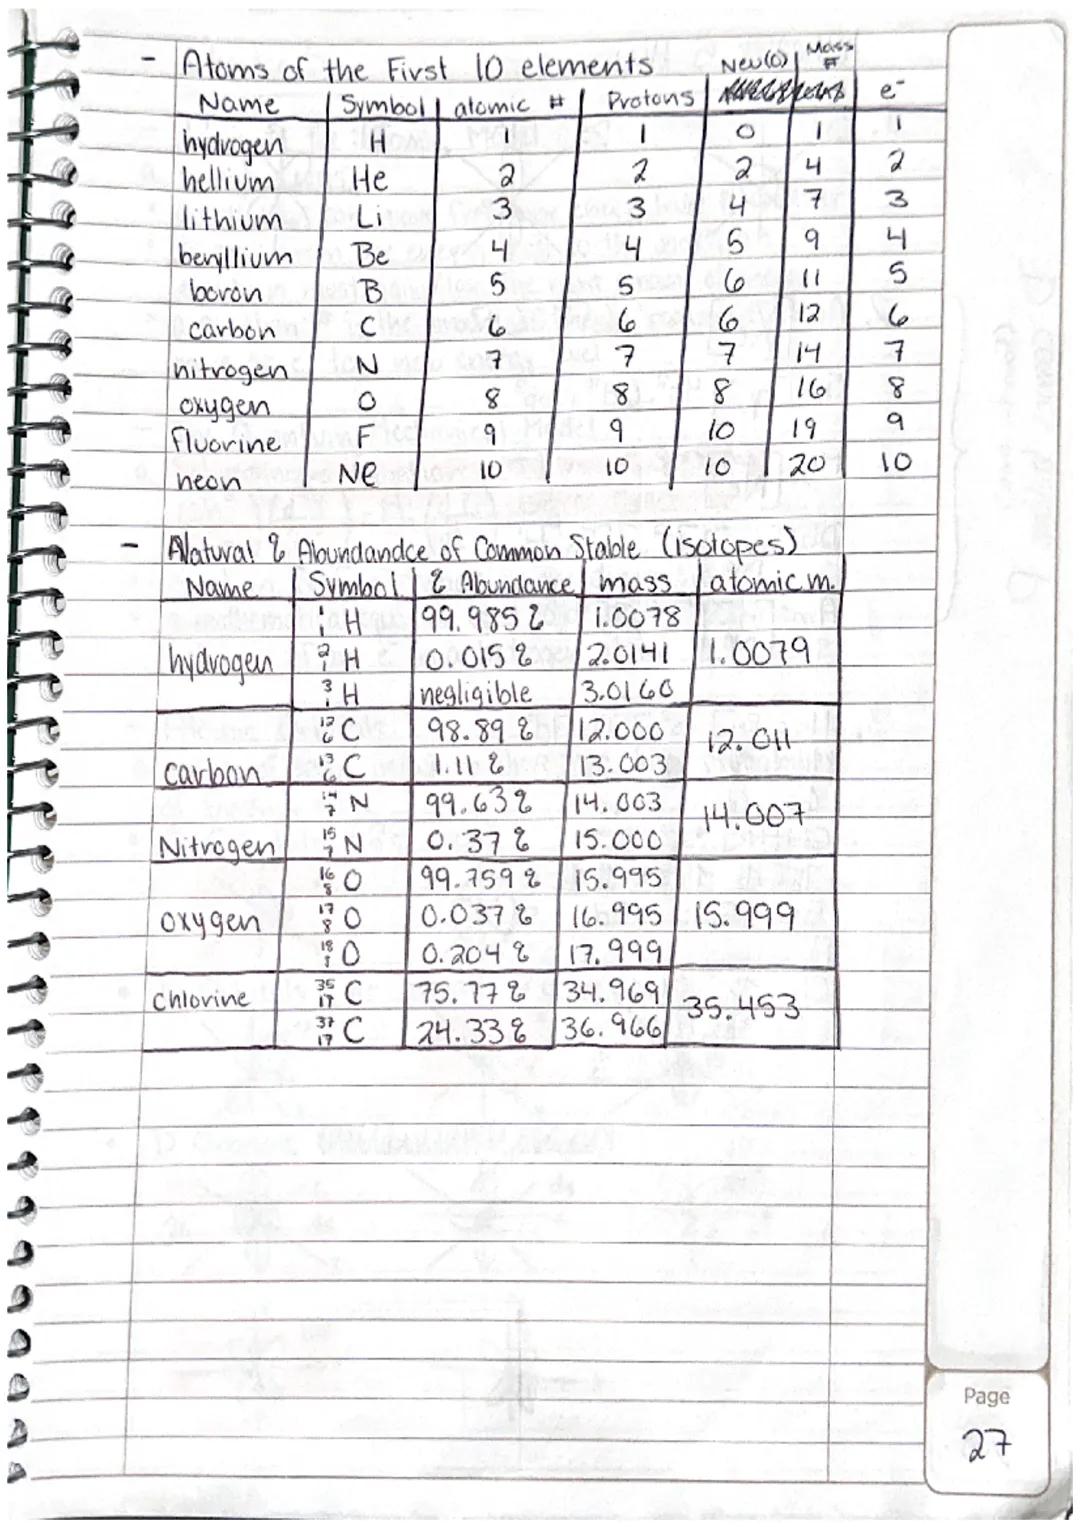 - Atoms of the First 10 elements Neu(0) Mass #
Name Symbol atomic # Protons e-
hydrogen H 1 1 0 1 1
hellium He 2 2 2 4 2
lithium Li 3 3 4 7 3
beryllium Be 4 4 5 9 4
boron B 5 5 6 11 5
carbon C 6 6 6 12 6
nitrogen N 7 7 7 14 7
oxygen O 8 8 8 16 8
fluorine F 9 9 10 19 9
neon Ne 10 10 10 20 10
- Natural % Aboundandce of Common Stable (isotopes)
Name Symbol % Abundance mass atomic m.
¹₁H 99.985% 1.0078
hydrogen ²₁H 0.015% 2.0141 1.0079
³₁H negligible 3.0160
¹²₆C 98.89% 12.000 12.011
carbon ¹³₆C 1.11% 13.003
¹⁴₇N 99.63% 14.003 14.007
Nitrogen ¹⁵₇N 0.37% 15.000
¹⁶₈O 99.759% 15.995
oxygen ¹⁷₈O 0.037% 16.995 15.999
¹⁸₈O 0.204% 17.999
chlorine ³⁵₁₇C 75.77% 34.969 35.453
³⁷₁₇C 24.33% 36.966
Page
27